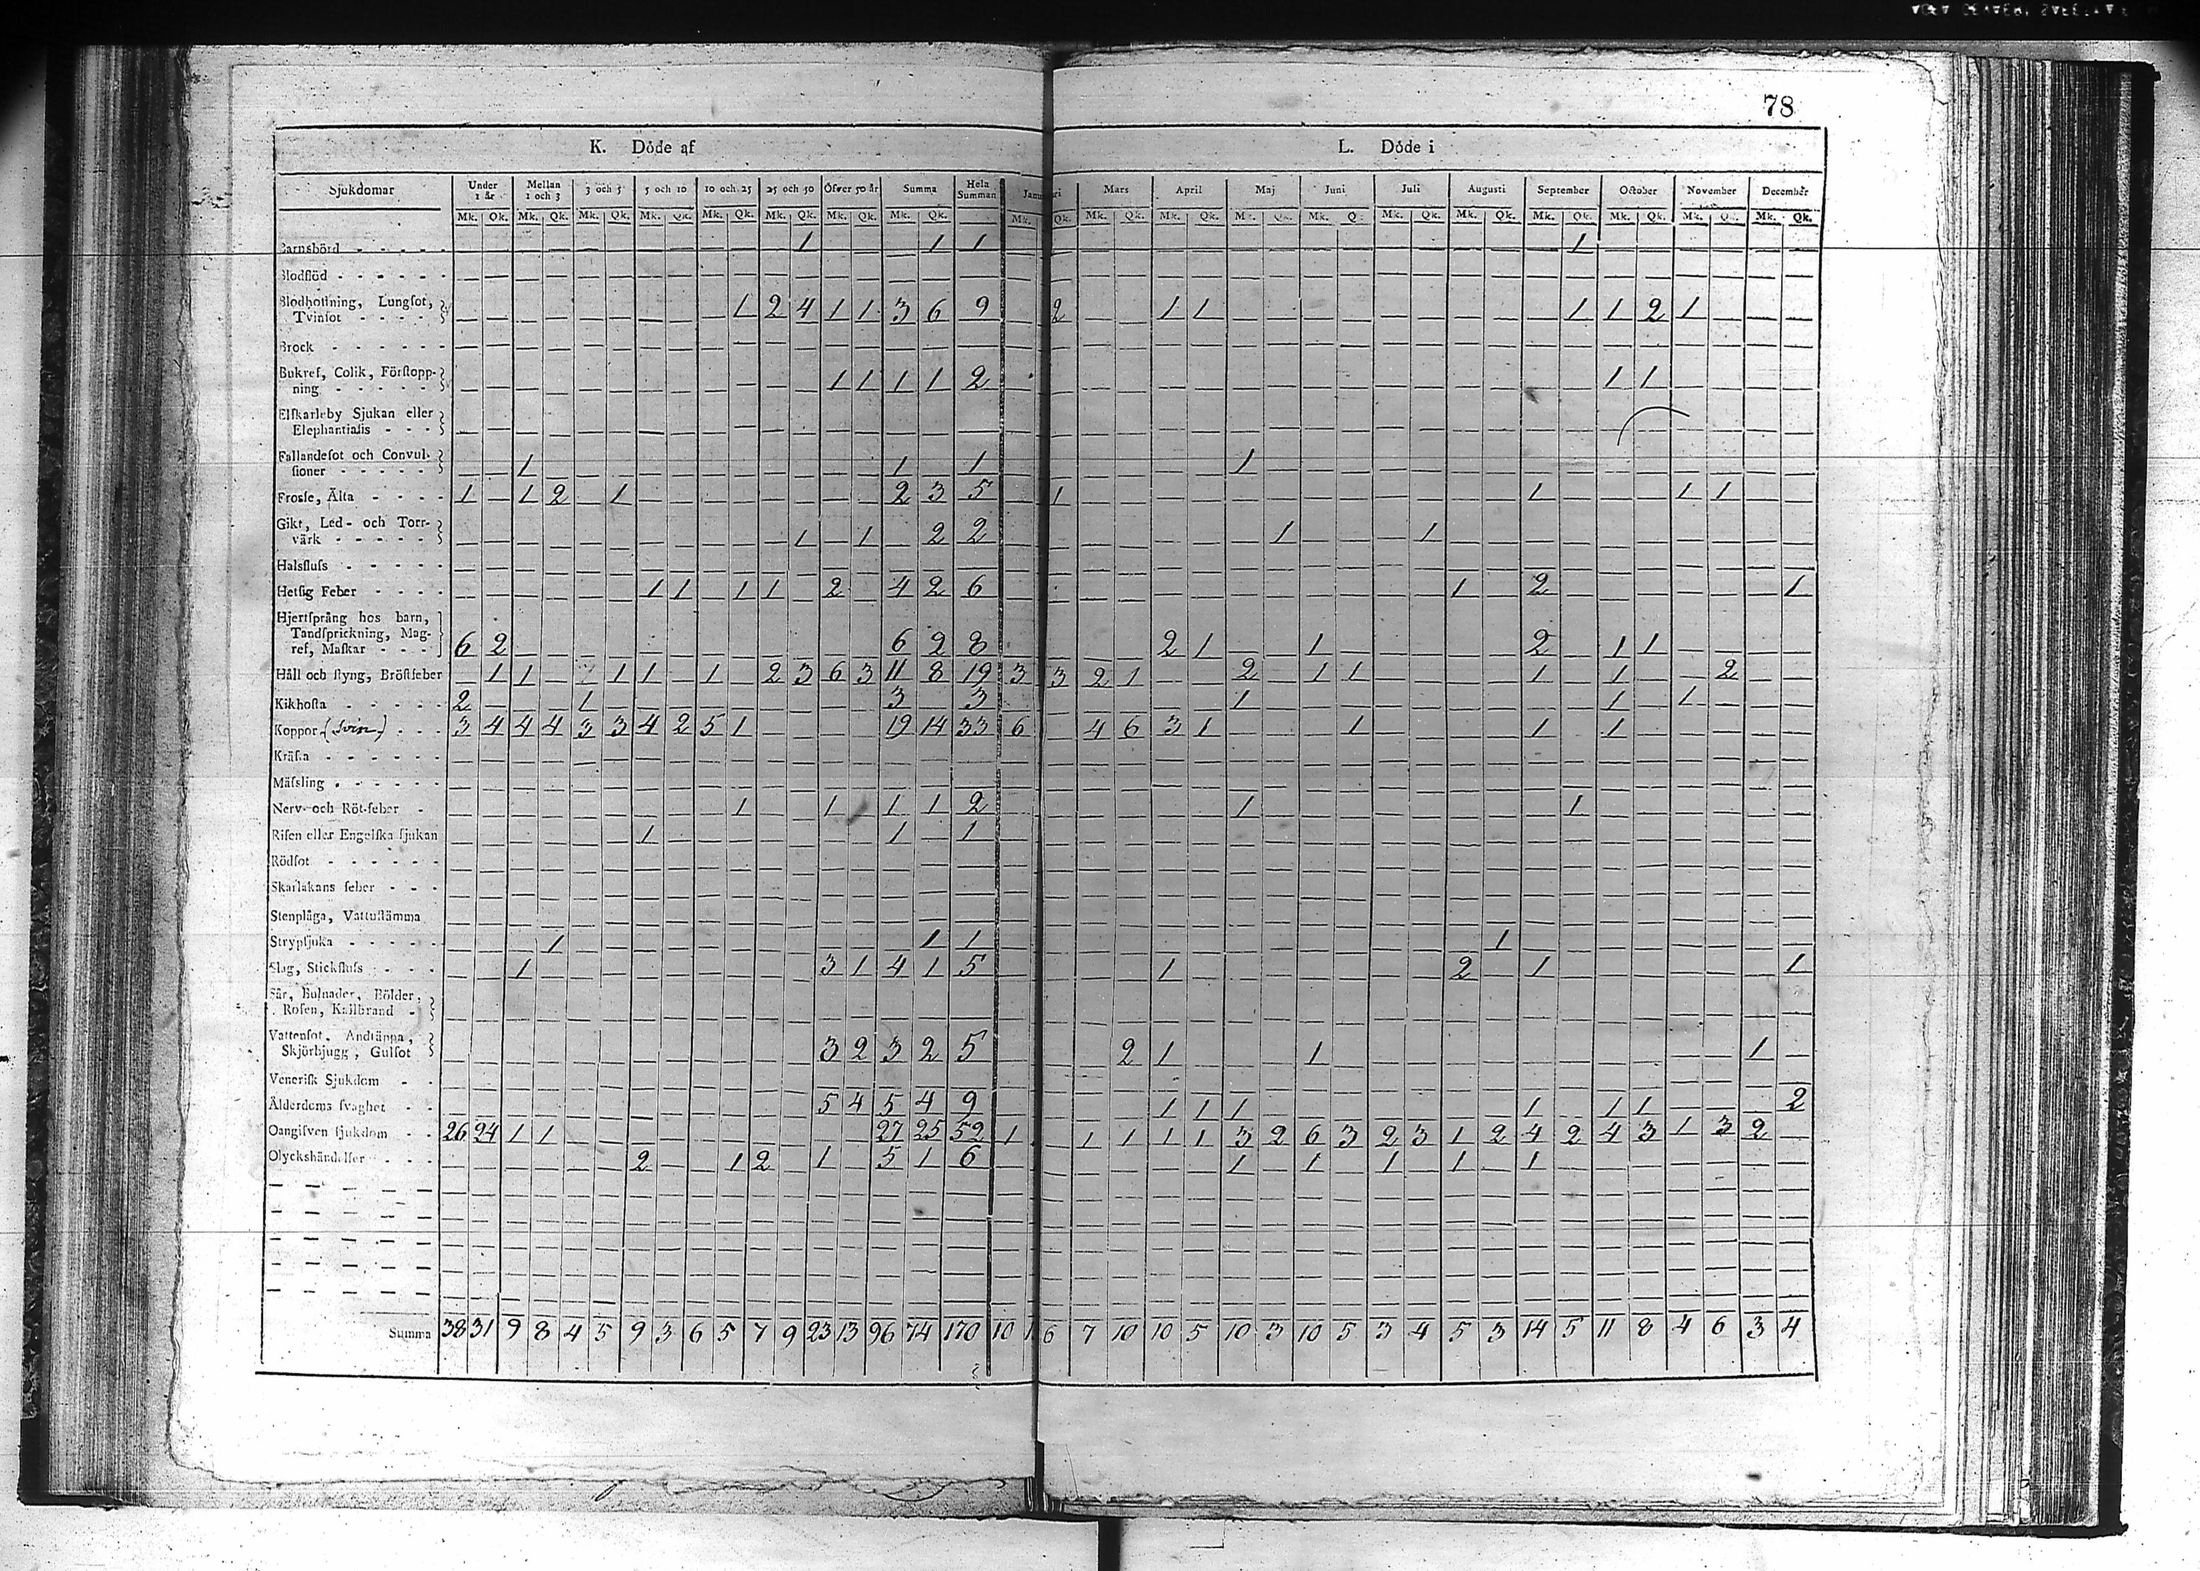 78
K. Döde af
L. Döde i
Sjukdomar Under 1 år Mellan 1 och 3 3 och 5 5 och 10 10 och 25 25 och 50 Öfver 50 år Summa Hela Summan Mars April Maj Juni Juli Augusti September October November December
Mk. Qk. Mk. Qk. Mk. Qk. Mk. Qk. Mk. Qk. Mk. Qk. Mk. Qk. Mk. Qk. Mk. Qk. Mk. Qk. Mk. Qk. Mk. Qk. Mk. Mk. Qk. Mk. Qk. Mk. Qk. Mk. Qk. Mk. Mk. Qk.
Barnsbörd - - - - - 1 1 1 1
Blodflöd - - - - - -
Blodhostning, Lungsot,
Tvinsot - - - - 1 2 4 1 1 3 6 9 2 1 1 1 1 2 1
Brock - - - - - -
Bukref, Colik, Förstopp-
ning - - - - - 1 1 1 1 2 1 1
Elfkarleby Sjukan eller
Elephantiasis - - -
Fallandesot och Convul-
sioner - - - - - 1 1 1 1
Frosse, Älta - - - - 1 1 2 1 2 3 5 1 1 1 1
Gikt, Led- och Torr-
värk - - - - - 1 1 2 2 1 1
Halsfluss - - - - -
Hetsig Feber - - - - 1 1 1 1 2 4 2 6 1 2 1
Hjertsprång hos barn,
Tandsprickning, Mag-
ref, Maskar - - - 6 2 6 2 8 2 1 1 2 1 1
Håll och styng, Bröstfeber 1 1 1 1 1 2 3 6 3 11 8 19 3 3 2 1 2 1 1 1 1 2
Kikhosta - - - - - 2 1 3 3 1 1 1
Koppor - - - 3 4 4 4 3 3 4 2 5 1 19 14 33 6 4 6 3 1 1 1 1
Kräfta - - - - - -
Mässling - - - - - -
Nerv- och Röt-feber - 1 1 1 1 2 1 1
Risen eller Engelska sjukan 1 1 1
Rödsot - - - - - -
Skarlakans feber - - -
Stenplåga, Vattustämma
Strypsjuka - - - - - 1 1 1 1
Slag, Stickfluss - - - 1 3 1 4 1 5 1 2 1 1
Sår, Bulnader, Bölder,
Rosen, Kallbrand -
Vattensot, Andtäppa,
Skjörbjugg, Gulsot 3 2 3 2 5 2 1 1 1
Venerisk Sjukdom - -
Ålderdoms svaghet - - 5 4 5 4 9 1 1 1 1 1 1 2
Oangifven sjukdom - - 26 24 1 1 27 25 52 1 1 1 1 1 3 2 6 3 2 3 1 2 4 2 4 3 1 3 2
Olyckshändelser - - - 2 1 2 1 5 1 6 1 1 1 1 1
Summa 38 31 9 8 4 5 9 3 6 5 7 9 23 13 96 74 170 10 6 7 10 10 5 10 3 10 5 3 4 5 3 14 5 11 8 4 6 3 4